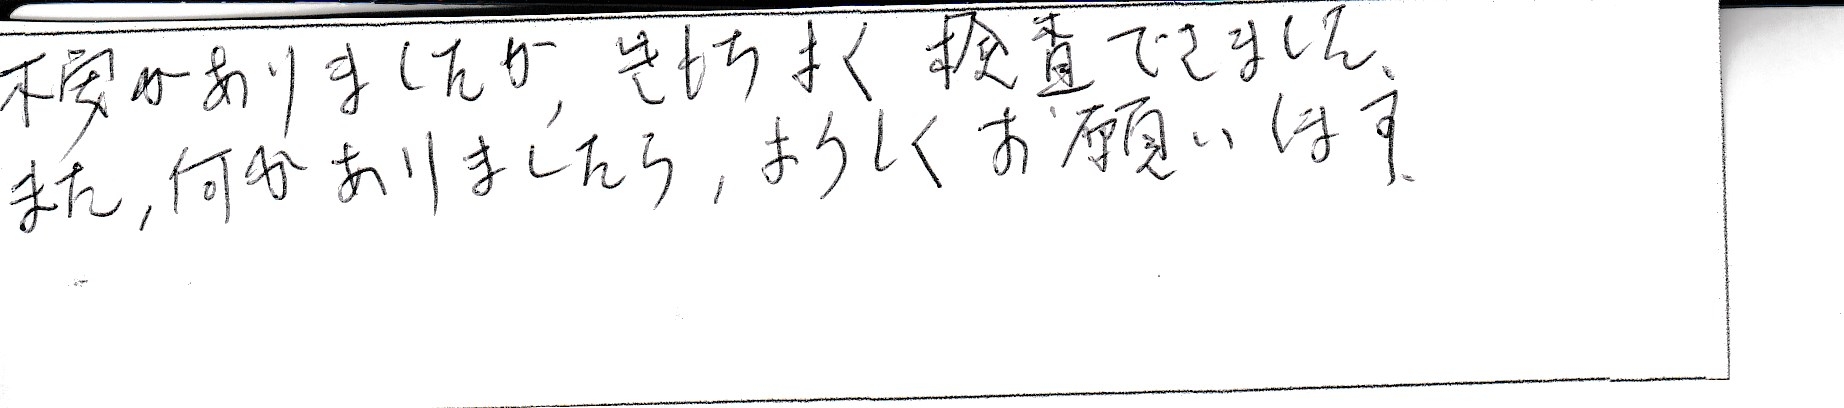 不安がありましたが、きもちよく検査できました。
また、何かありましたら、よろしくお願いします。